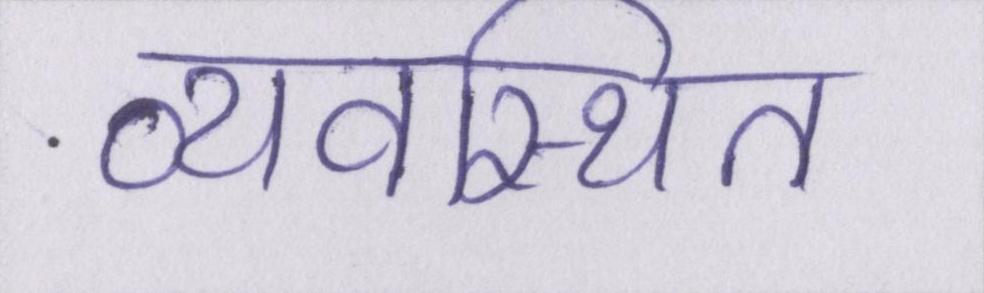 व्यवस्थित